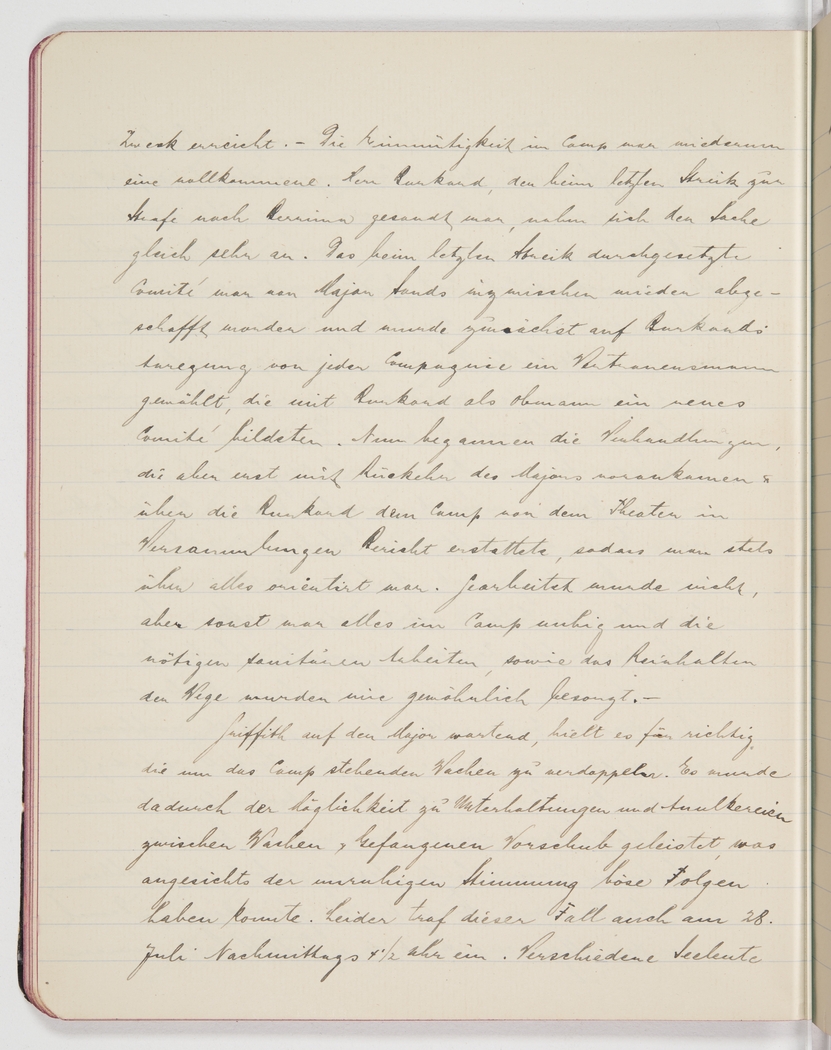 Zweck erreicht. – Die Einmütigkeit im Camp war wiederum
eine vollkommene. Herr Burkard, der beim letzten Streik zur
Strafe nach Berrima gesandt war, nahm sich der Sache
gleich sehr an. Das beim letzten Streik durchgesetzte
Comité war von Major Sands inzwischen wieder abge-
schafft worden und wurde zunächst auf Burkards
Anregung von jeder Compagnie ein Vertrauensmann
gewählt, die mit Burkard als Obmann ein neues
Comité bildeten. Nun begannen die Verhandlungen,
die aber erst mit Rückkehr des Majors vorankamen &
über die Burkard dem Camp von dem Theater in
Versammlungen Bericht erstattete, sodass man stets
über alles orientirt war. Gearbeitet wurde nicht,
aber sonst war alles im Camp ruhig und die
nötigen sanitären Arbeiten, sowie das Reinhalten
der Wege wurden wie gewöhnlich besorgt. –
Griffith auf den Major wartend, hielt es für richtig,
die um das Camp stehenden Wachen zu verdoppeln. Es wurde
dadurch der Möglichkeit zu Unterhaltungen und Anulkereien
zwischen Wachen & Gefangenen Vorschub geleistet, was
angesichts der unruhigen Stimmung böse Folgen
haben konnte. Leider traf dieser Fall auch am 28.
Juli Nachmittags 4 1/2 Uhr ein. Verschiedene Seeleute